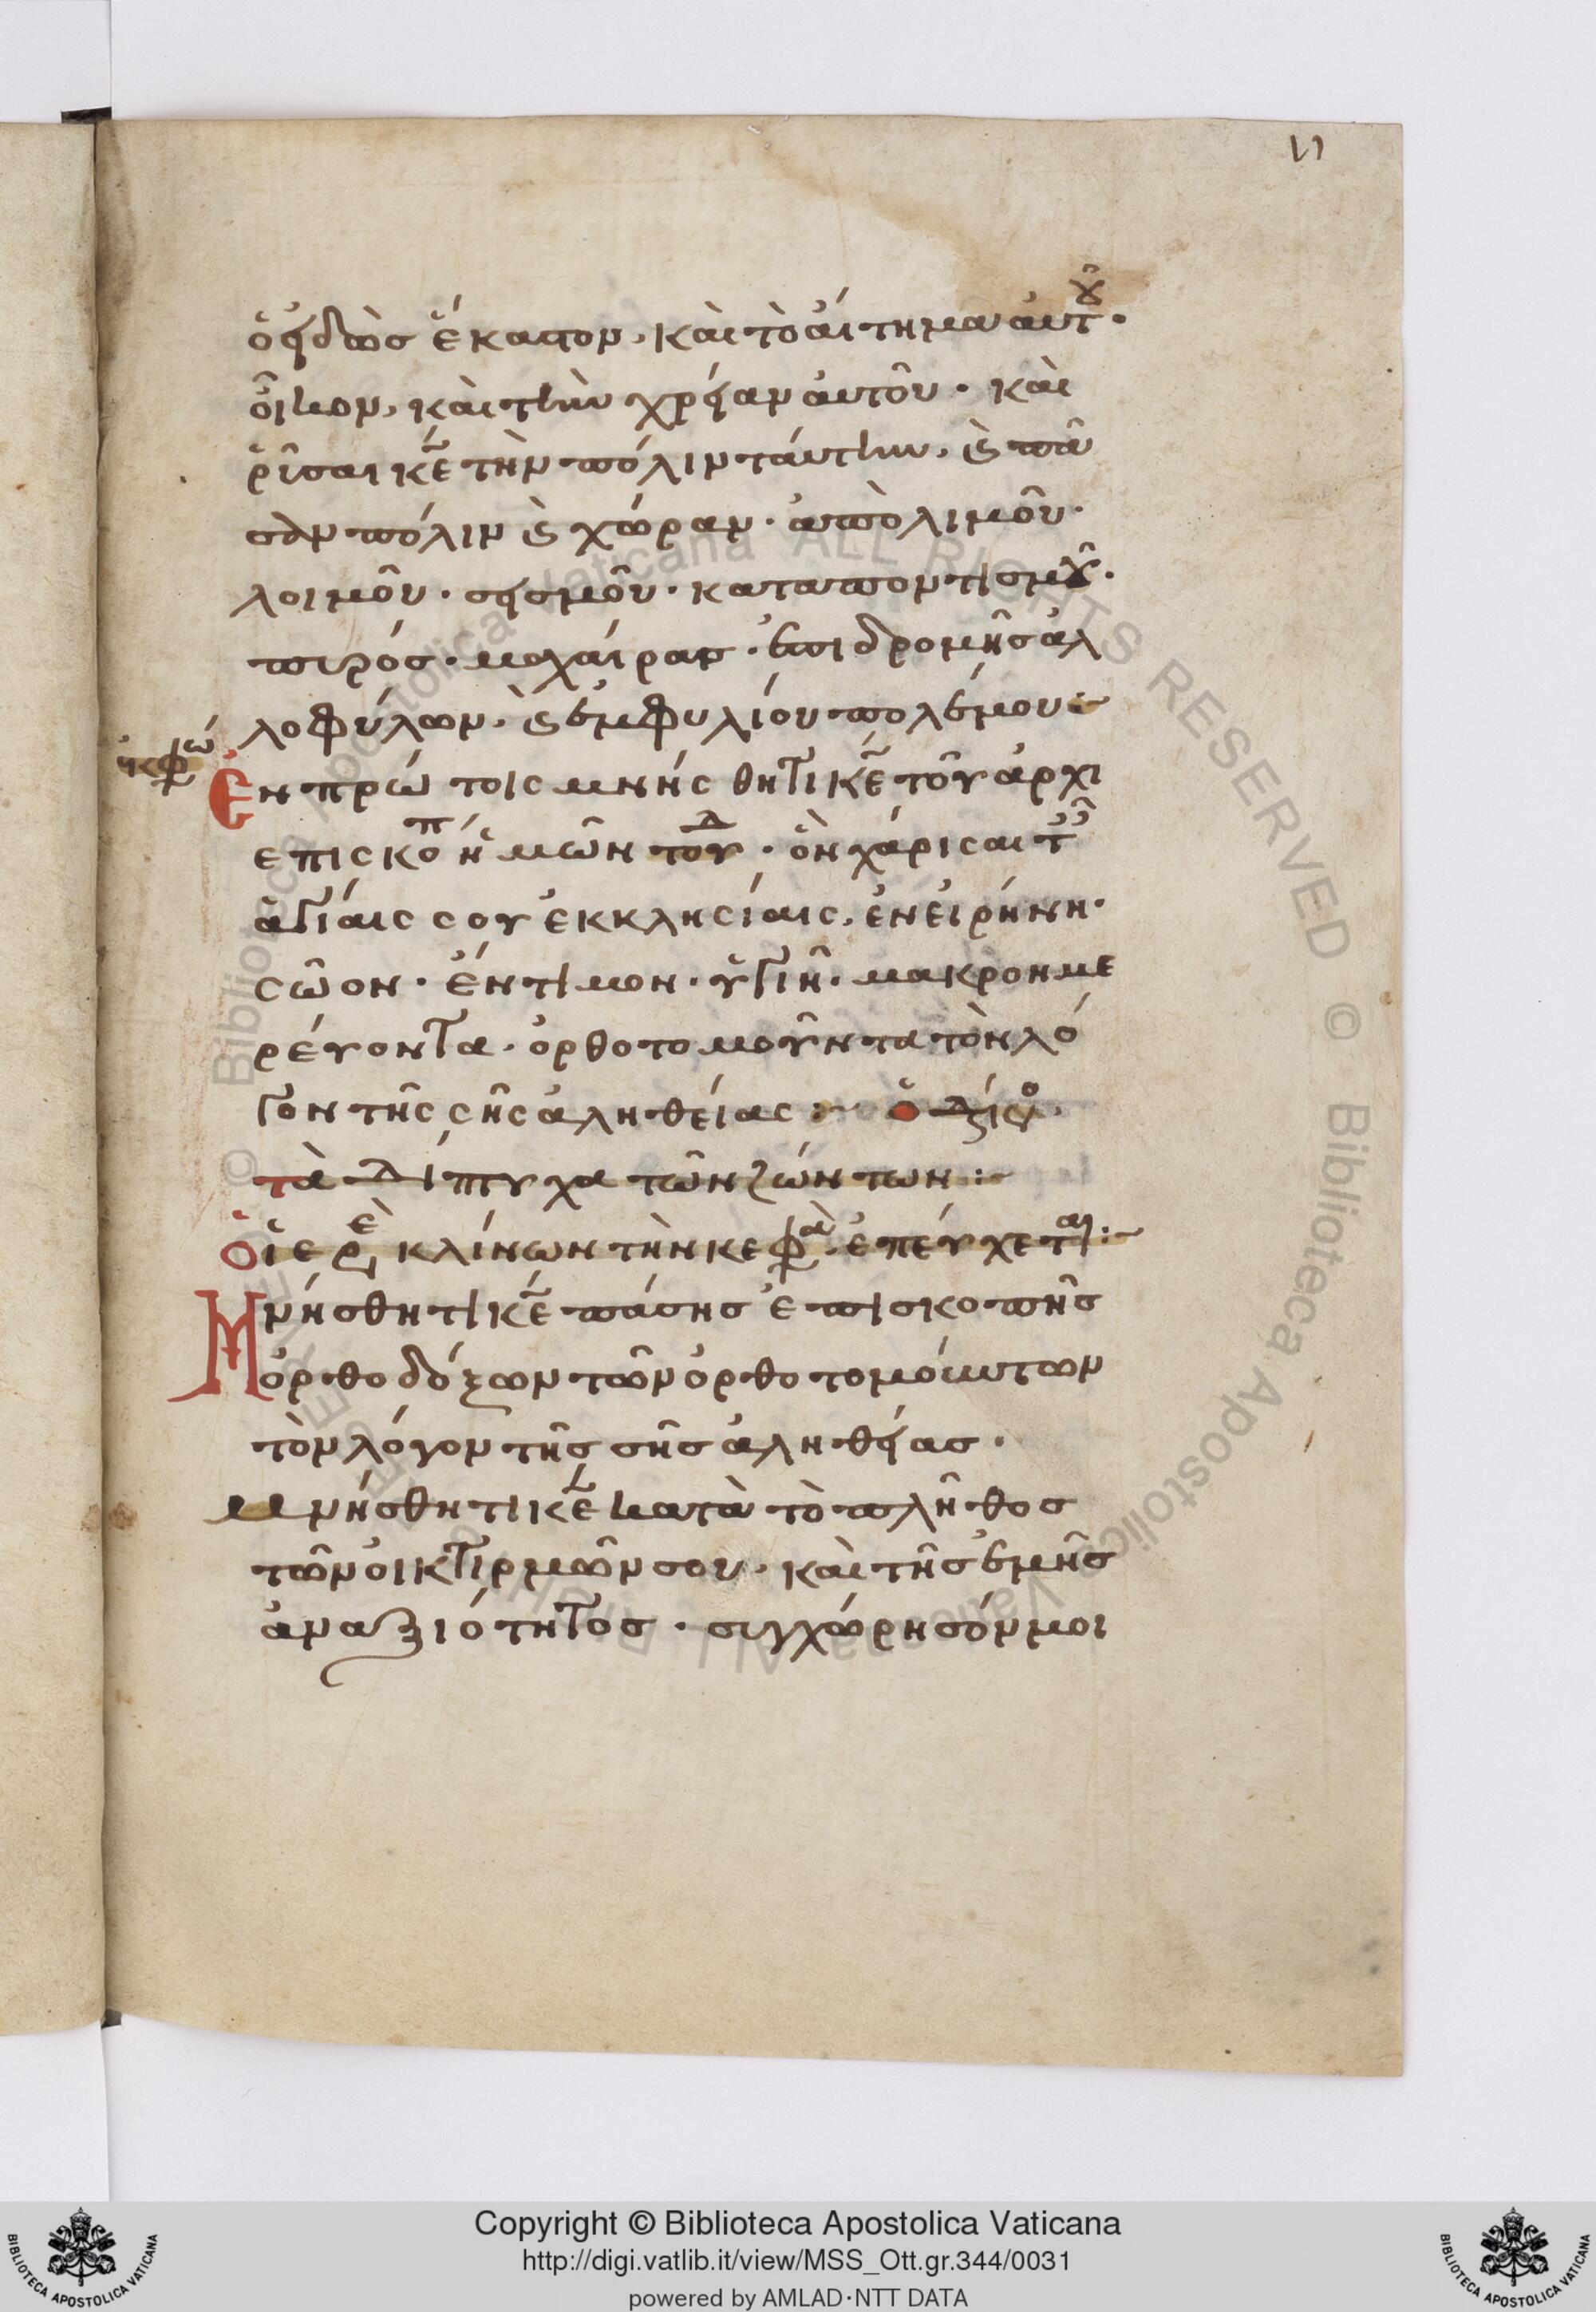 11
ὁ εἰδὼς ἕκαστον, καὶ τὸ αἴτημα αὐτοῦ·
οἶκον, καὶ τὴν χρείαν αὐτοῦ· καὶ
ῥῦσαι κ̅ε̅ τὴν πόλιν ταύτην, καὶ πᾶ
σαν πόλιν καὶ χώραν· ἀπὸ λιμοῦ·
λοιμοῦ· σεισμοῦ· καταποντισμοῦ·
πυρός· μαχαίρας· ἐπιδρομῆς ἀλ
λοφύλων· καὶ ἐμφυλίου πολέμου:~
ἐκφώ
Ἐν πρώτοις μνήσθητι κ̅ε̅ τοῦ ἀρχι
επισκόπ ἡμῶν τοῦ δ· ὃν χάρισαι τ
ἁγίαις σου ἐκκλησίαις, ἐν εἰρήνη·
σῶον· ἔντιμον· ὑγιῆ· μακροημε
ρεύοντα· ὀρθοτομοῦντα τὸν λό
γον τῆς σῆς ἀληθείας:~ Ὁ διάκο
τὰ δίπτυχα τῶν ζώντων:~
Ὁ ἱερεὺ κλίνων τὴν κεφαλ ἐπεύχεται:~
Μνήσθητι κ̅ε̅ πάσης ἐπισκοπῆς
ὀρθοδόξων τῶν ὀρθοτομούντων
τὸν λόγον τῆς σῆς ἀληθείας·
Μνήσθητι κ̅ε̅ κατὰ τὸ πλῆθος
τῶν οἰκτιρμῶν σου· καὶ τῆς ἐμῆς
ἀναξιότητος· συγχώρησόν μοι
Copyright © Biblioteca Apostolica Vaticana
http://digi.vatlib.it/view/MSS_Ott.gr.344/0031
powered by AMLAD·NTT DATA